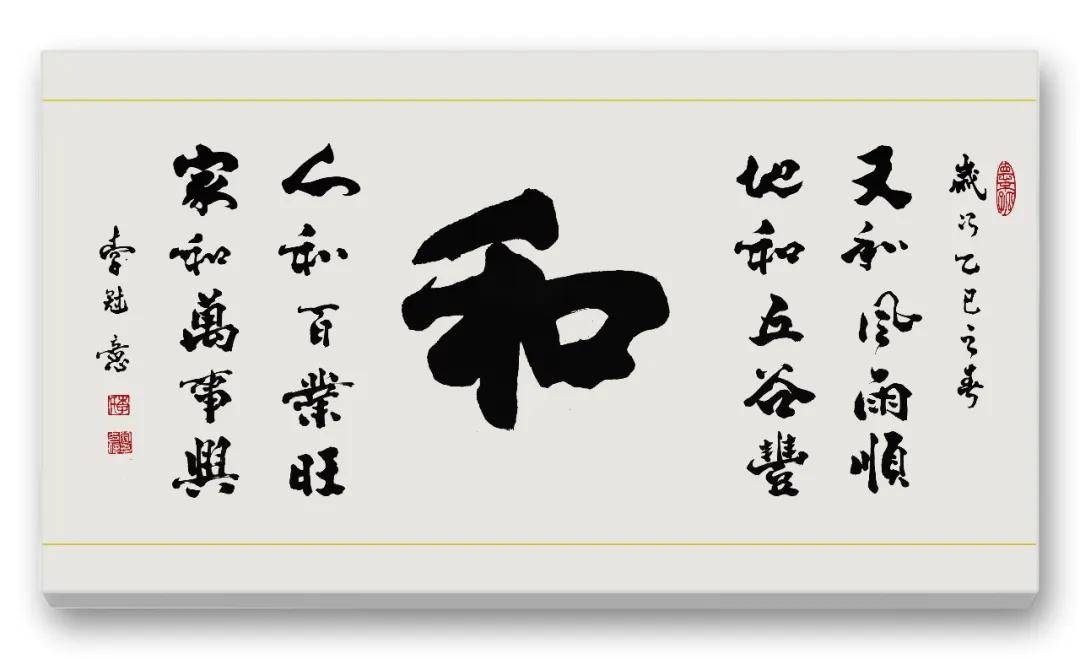 歲次乙巳之春
天和風雨順
地和五谷豐
和
人和百業旺
家和萬事興
李冠意